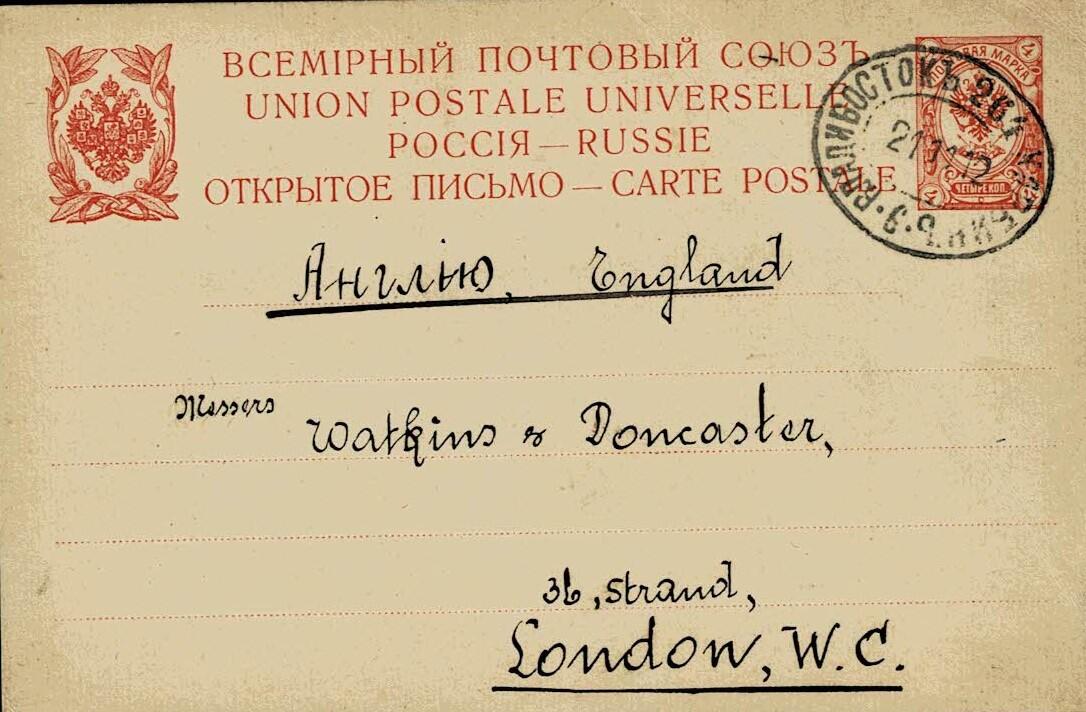 ВСЕМІРНЫЙ ПОЧТОВЫЙ СОЮЗЪ
UNION POSTALE UNIVERSELLE
РОССІЯ — RUSSIE
ОТКРЫТОЕ ПИСЬМО — CARTE POSTALE
МАРКА
4
ЧЕТЫРЕ КОП.
ВЛАДИВОСТОКЪ
Англію, England
Messers
Watkins & Doncaster,
36, Strand,
London, W.C.